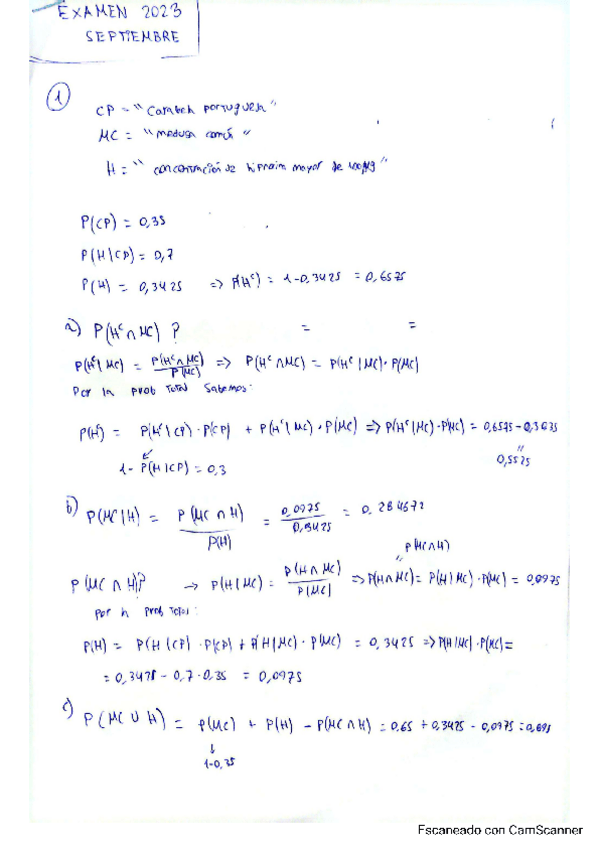 EXAMEN 2023
SEPTIEMBRE
1
CP = "Carabela portuguesa"
MC = "medusa común"
H = " concentración de hipnoína mayor de
P(CP) = 0,35
P(H|CP) = 0,7
P(H) = 0,3425 => P(Hᶜ) = 1-0,3425 = 0,6575
a) P(Hᶜ∩MC) ? = =
P(Hᶜ|MC) = P(Hᶜ∩MC)/P(MC) => P(Hᶜ∩MC) = P(Hᶜ|MC)·P(MC)
Por la prob Total sabemos:
P(Hᶜ) = P(Hᶜ|CP)·P(CP) + P(Hᶜ|MC)·P(MC) => P(Hᶜ|MC)·P(MC) = 0,6575-0,3·0,35
1-P(H|CP) = 0,3
"
0,5525
b) P(MC|H) = P(MC∩H)/P(H) = 0,0975/0,3425 = 0.284672
P(MC∩H)
"
P(MC∩H)? → P(H|MC) = P(H∩MC)/P(MC) => P(H∩MC) = P(H|MC)·P(MC) = 0,0975
por la prob Total:
P(H) = P(H|CP)·P(CP) + P(H|MC)·P(MC) = 0,3425 => P(H|MC)·P(MC) =
= 0,3425 - 0,7·0,35 = 0,0975
c) P(MC∪H) = P(MC) + P(H) - P(MC∩H) = 0,65 + 0,3425 - 0,0975 = 0,895
↓
1-0,35
Escaneado con CamScanner